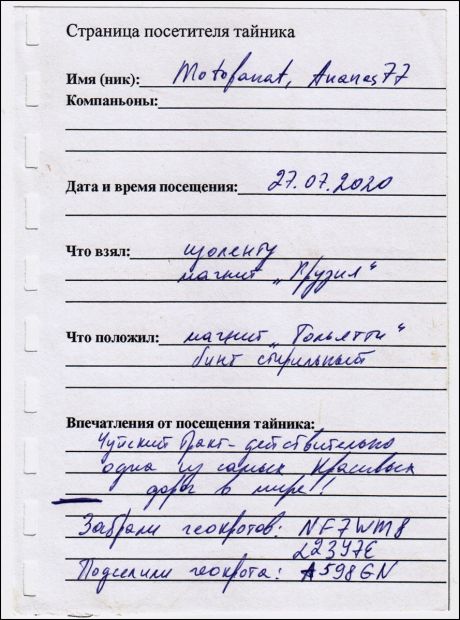 Страница посетителя тайника
Имя (ник): Motofanat, Ananas77
Компаньоны:
Дата и время посещения: 27.07.2020
Что взял: изоленту
магнит „Грузия“
Что положил: магнит „Тольятти“
бинт стирильный
Впечатления от посещения тайника:
Чуйский Тракт - действительно
одна из самых красивых
дорог в мире!!
Забрали геокротов: NF7WM8
Подселили геокрота: A598GN